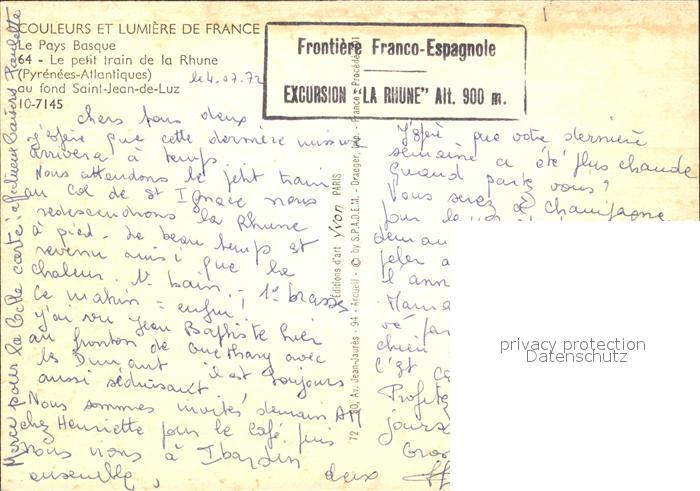 COULEURS ET LUMIÈRE DE FRANCE
Le Pays Basque
64 - Le petit train de la Rhune
(Pyrénées-Atlantiques)
au fond Saint-Jean-de-Luz
10-7145
le 4.07.72
Frontière Franco-Espagnole
EXCURSION "LA RHUNE" Alt. 900 m.
chers tous deux
J'espère que cette dernière missive
arrivera à temps.
Nous attendons le petit train
au col de St Ignace nous
redescendrons la Rhune
à pied - le beau temps est
revenu ainsi que la
chaleur. 1er bain
ce matin = enfin ; 1ère brasse
J'ai vu Jean Baptiste hier
au fronton de avec
les il est toujours
aussi séduisant.
Nous sommes invités demain AM
chez Henriette pour le café puis
nous irons à Ibardin
ensemble,
Merci pour la belle carte : affectueux baisers Paulette
Éditions d'art Yvon PARIS
72 Av. Jean-Jaurès - 94 - Arcueil - © by S.P.A.D.E.M. - Draeger, Imp. - France - Procédé
J'espère que votre dernière
semaine a été plus chaude
Quand partez vous ?
Vous serez à Champagne
pour le
l'ann
Mama
chien
c'est
Profite
jours
Gros
deux
privacy protection
Datenschutz